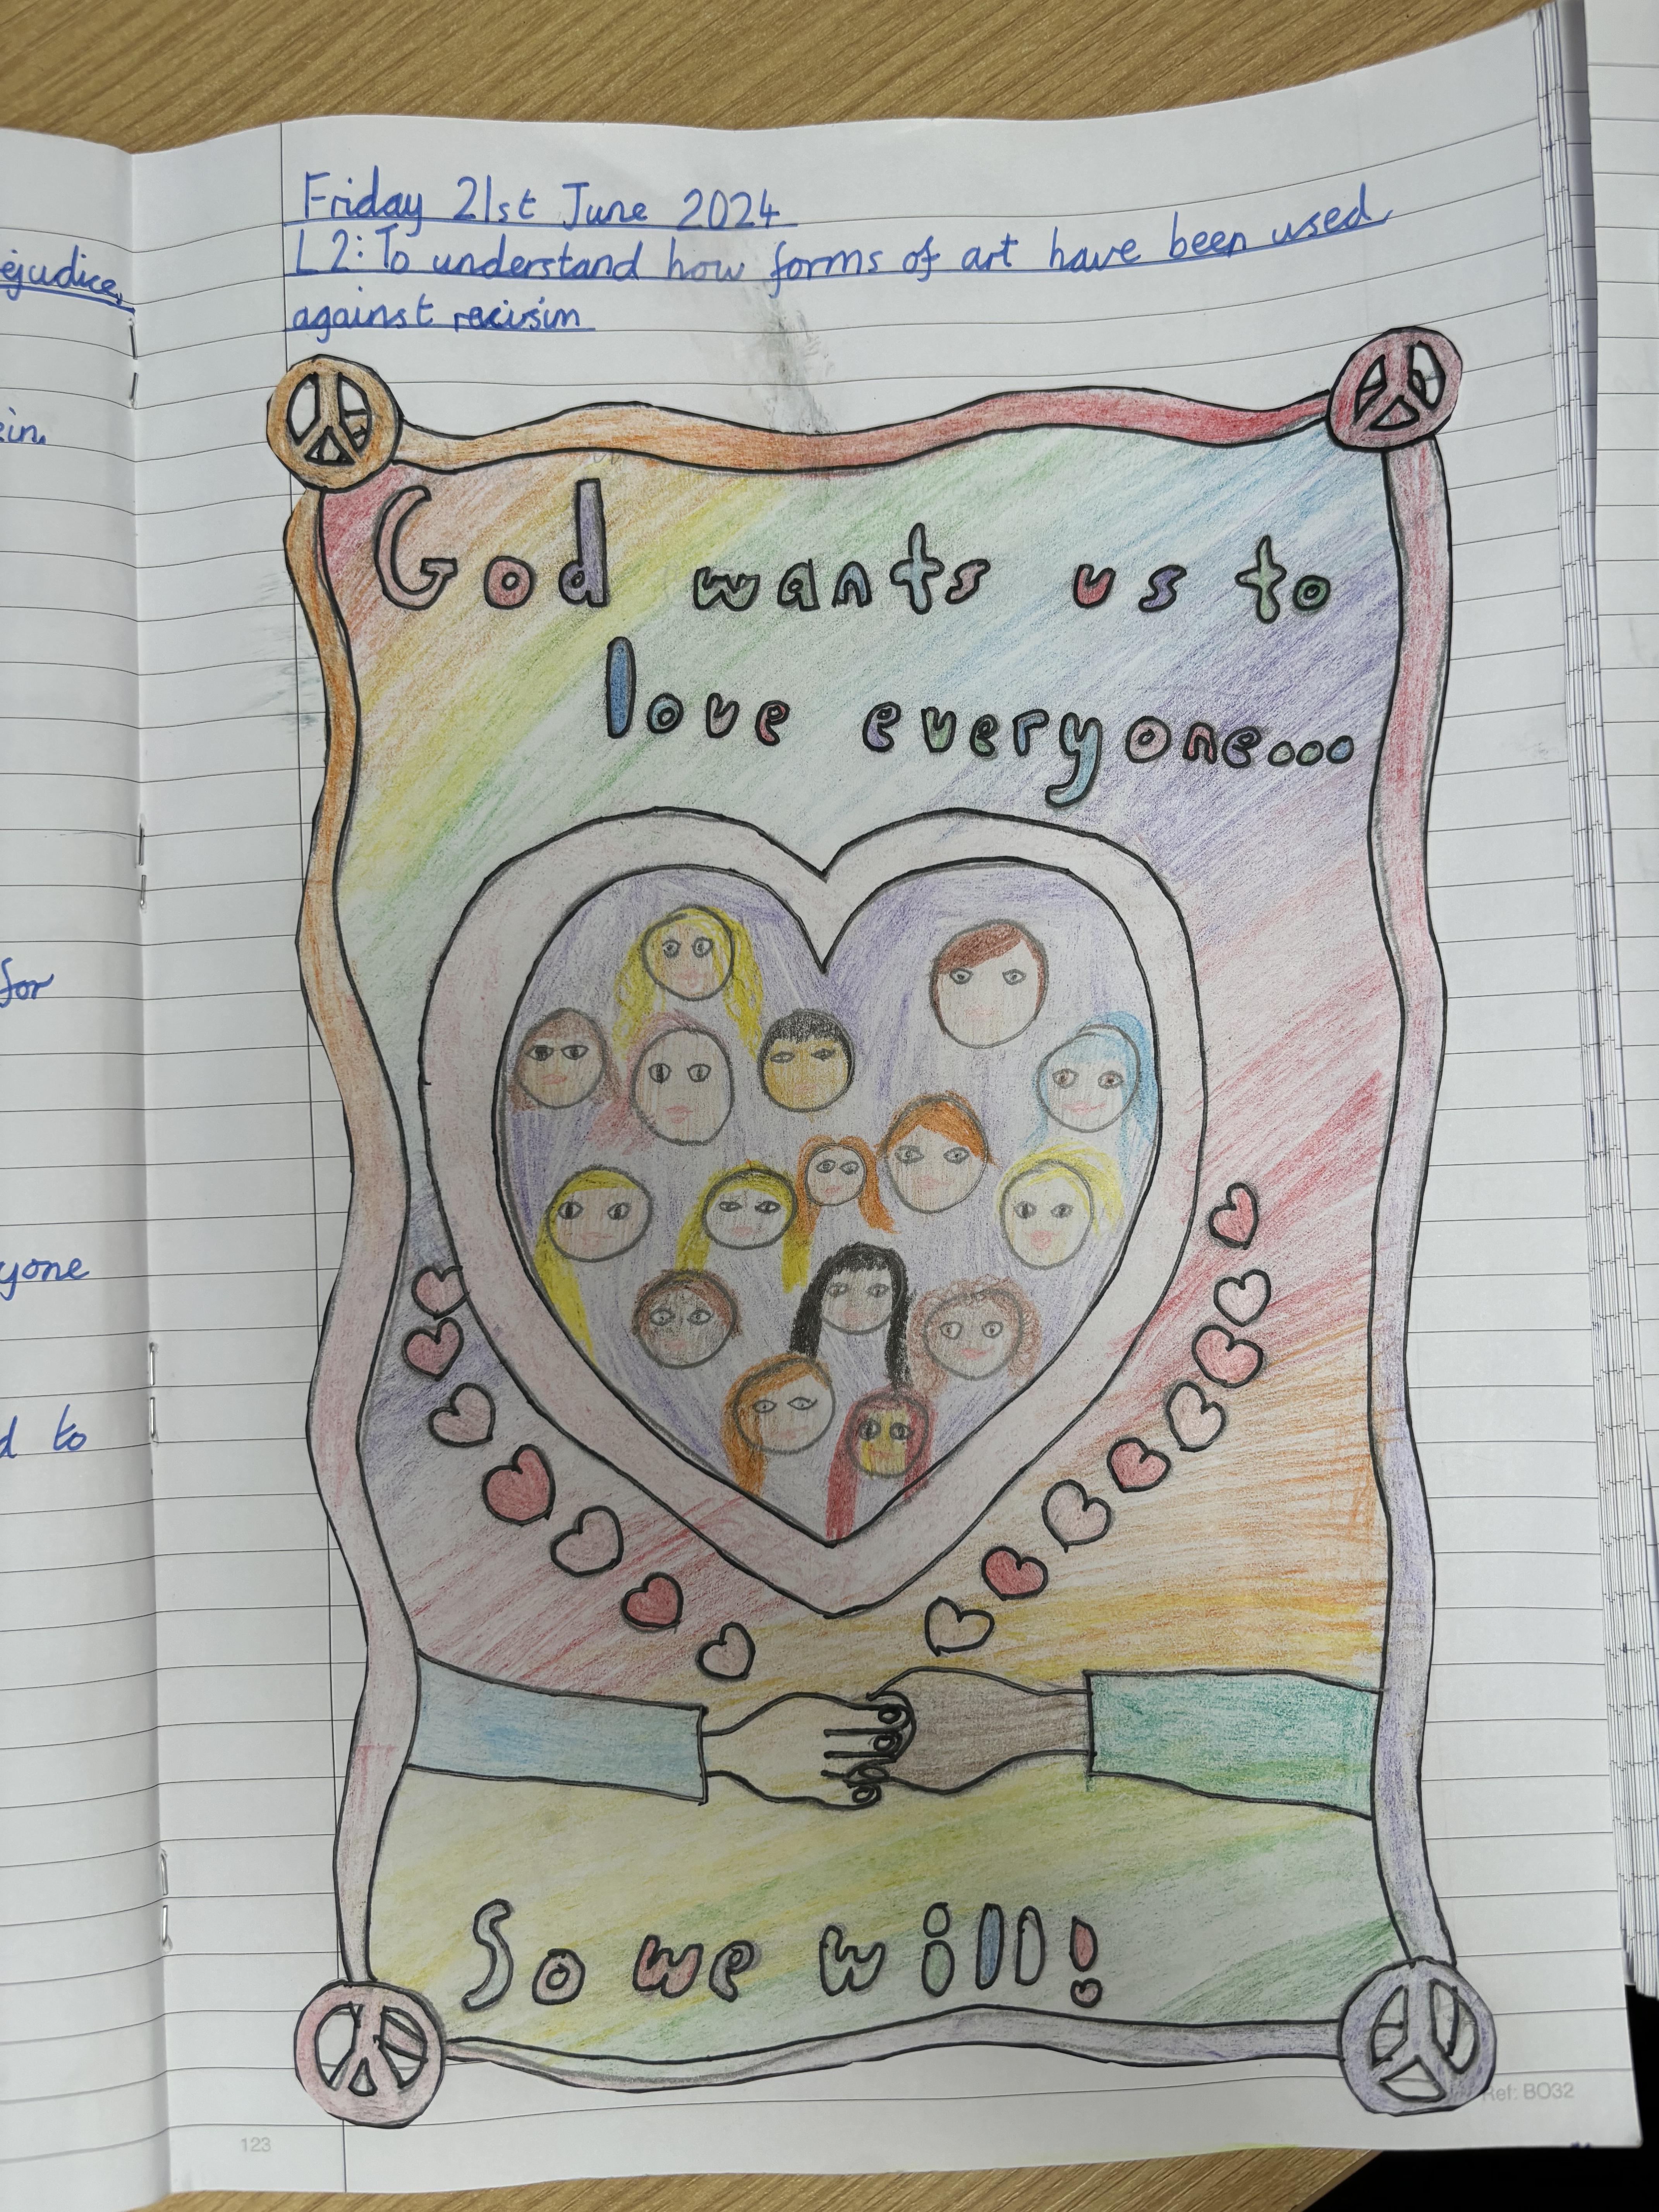 Friday 21st June 2024
L2: To understand how forms of art have been used
against recisim
God wants us to
love everyone...
So we will!
ejudice,
ein.
for
yone
d to
Ref: BO32
123